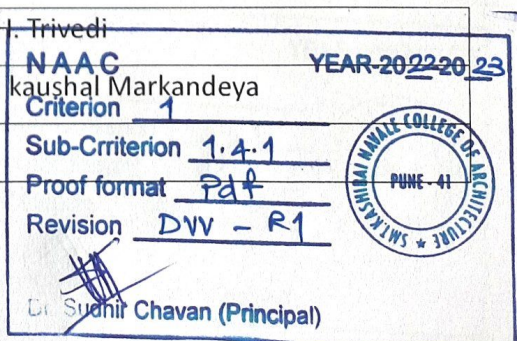 J. Trivedi
NAAC YEAR-2022-2023
kaushal Markandeya
Criterion 1
Sub-Crriterion 1.4.1
Proof format Pdf
Revision DVV - R1
Dr. Sudhir Chavan (Principal)
SMT.KASHIBAI NAVALE COLLEGE OF ARCHITECTURE
PUNE - 41